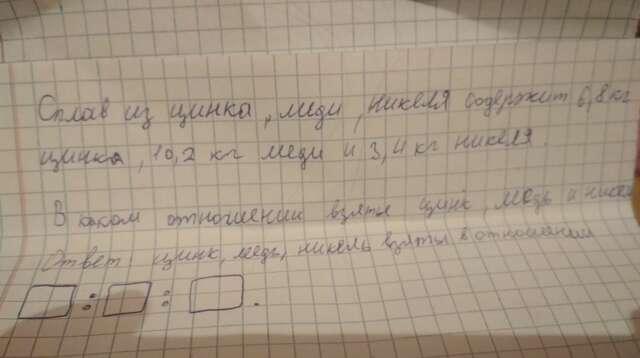 Сплав из цинка, меди, никеля содержит 6,8 кг
цинка, 10,2 кг меди и 3,4 кг никеля.
В каком отношении взяты цинк, медь и никел
Ответ: цинк, медь, никель взяты в отношении
: : .